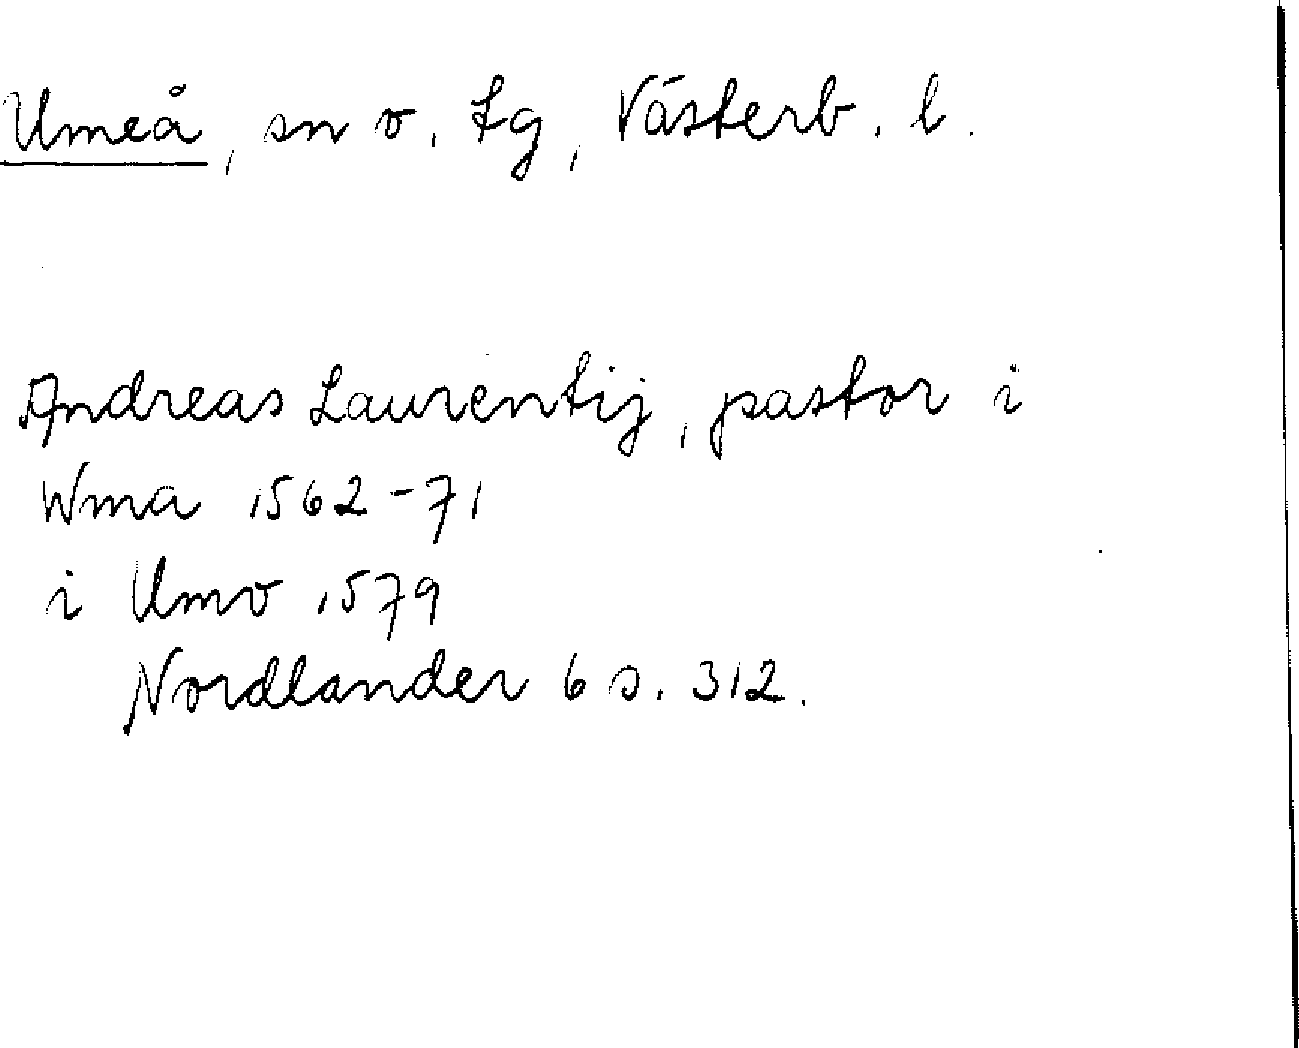 Umeå, sn o. tg, Västerb. l.
Andreas Laurentij, pastor i
Wma 1562-71
i Umo 1579
Nordlander 6 s. 312.